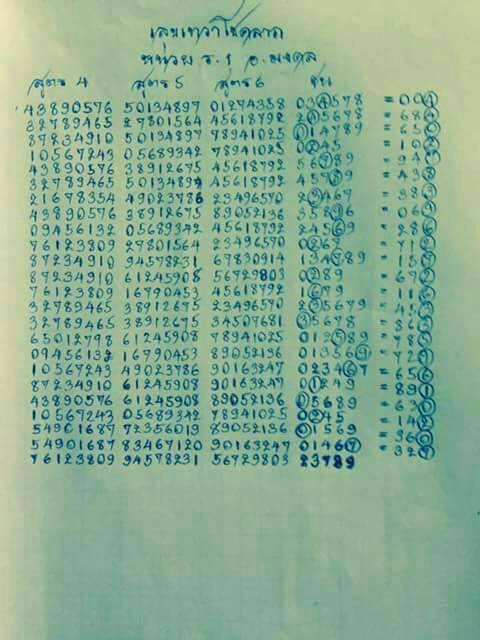 เลขเทวาโชคลาภ
หน่วย ร.1 อ.มงคล
สูตร 4 สูตร 5 สูตร 6 ชน
43890576 50134897 01274358 034578 = 004
32789465 27801564 45618792 245678 = 684
87234910 50134897 78941025 014789 = 650
10567243 05689342 78941025 0245 = 102
43890576 38912675 45618792 56789 = 947
32789465 50134897 45618792 45789 = 438
21678354 49023786 23496570 23467 = 383
43890576 38912675 89052136 35896 = 063
09456132 05689342 45618792 24569 = 286
76123809 27801564 23496570 0267 = 712
87234910 94578231 67830914 134789 = 157
87234910 61245908 56729803 0289 = 672
76123809 16790453 45618792 1679 = 116
32789465 38912675 23496570 235679 = 453
32789465 38912675 34507681 35678 = 863
65012798 61245908 78941025 012589 = 785
09456132 16790453 89052136 013569 = 729
10567243 49023786 90163247 023467 = 656
87234910 61245908 90163247 01249 = 891
43890576 61245908 89052136 05689 = 630
10567243 05689342 78941025 0245 = 142
54901687 72356019 89052136 01569 = 360
54901687 83467120 90163247 01467 = 327
76123809 94578231 56729803 23789